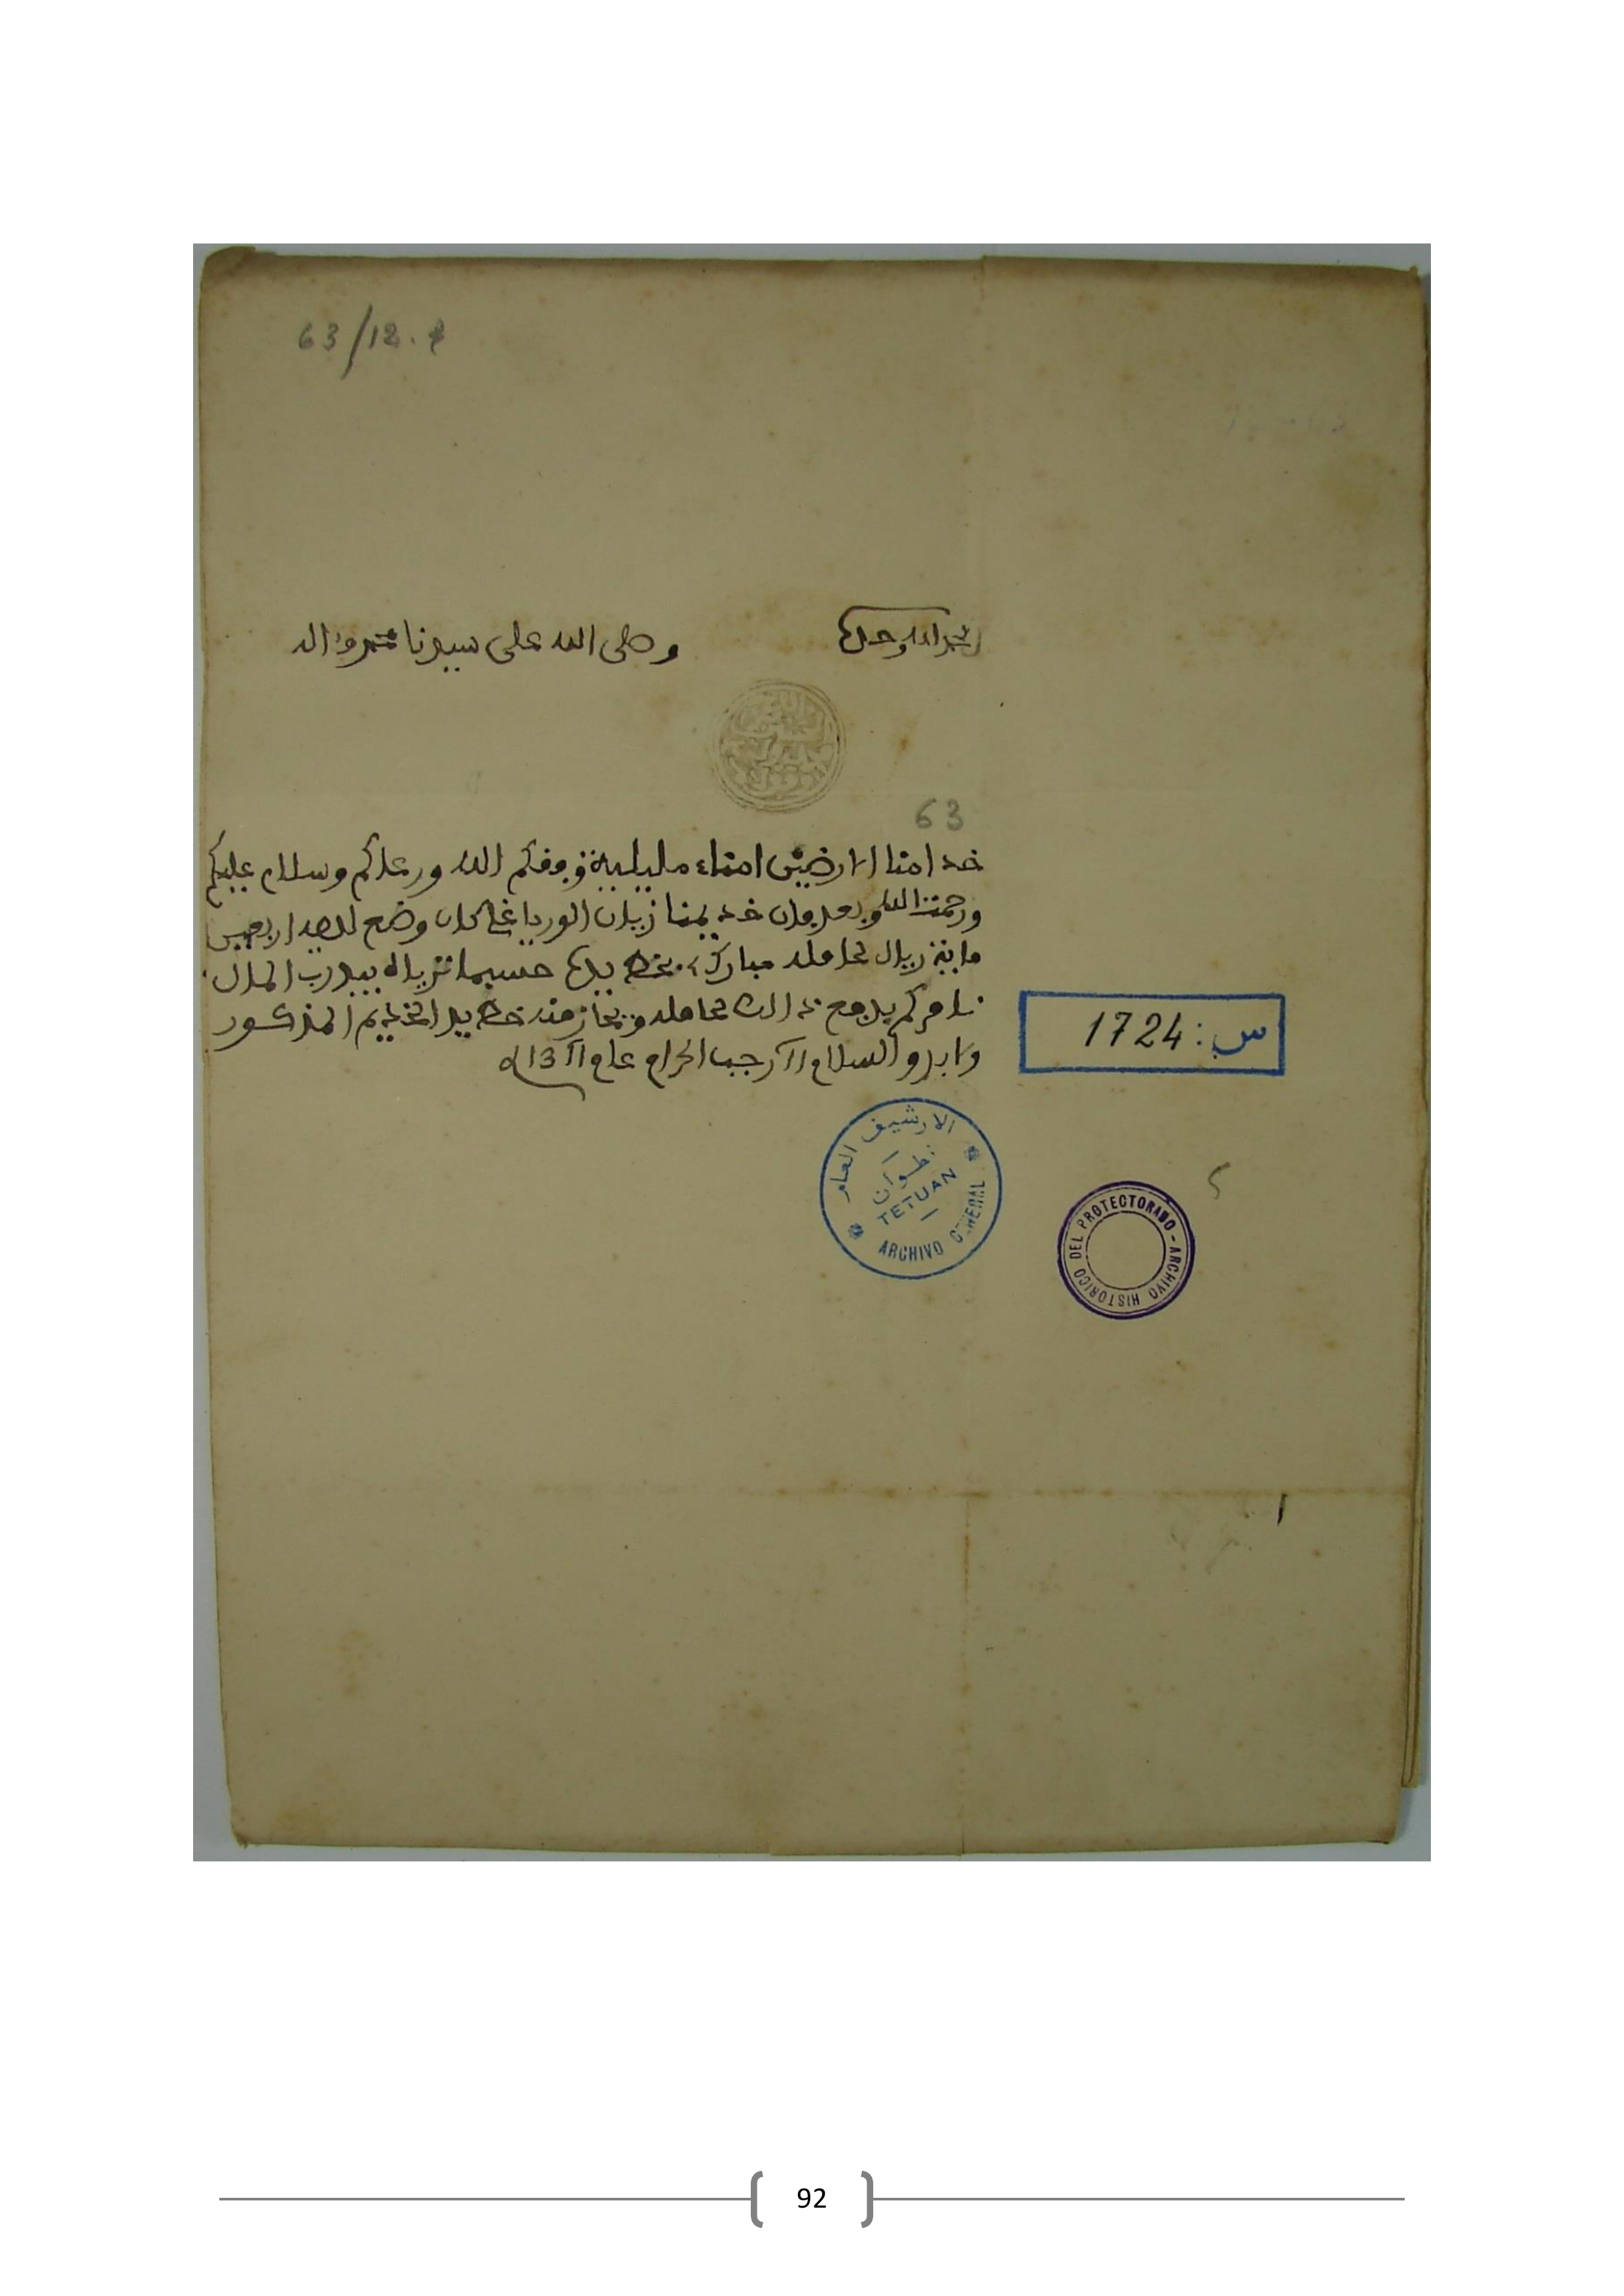 63/12.
الحمد لله وحده
وصلى الله على سيدنا محمد وءاله
63
خدامنا الارضين امناء مليلية وفقكم الله ورعاكم وسلام عليكم
ورحمت الله وبعد فان خديمنا زيان الورياغلي كان وضع
ماية ريال لحامله مبارك بخط يده حسبما تراه بيد رب المال
نامركم بدفع ذالك لحامله وتحاز منه خط يد الخديم المذكور
ولا بد والسلام رجب الحرام عام
س: 1724
الارشيف العام
تطوان
TETUAN
ARCHIVO GENERAL
ARCHIVO HISTORICO DEL PROTECTORADO
92